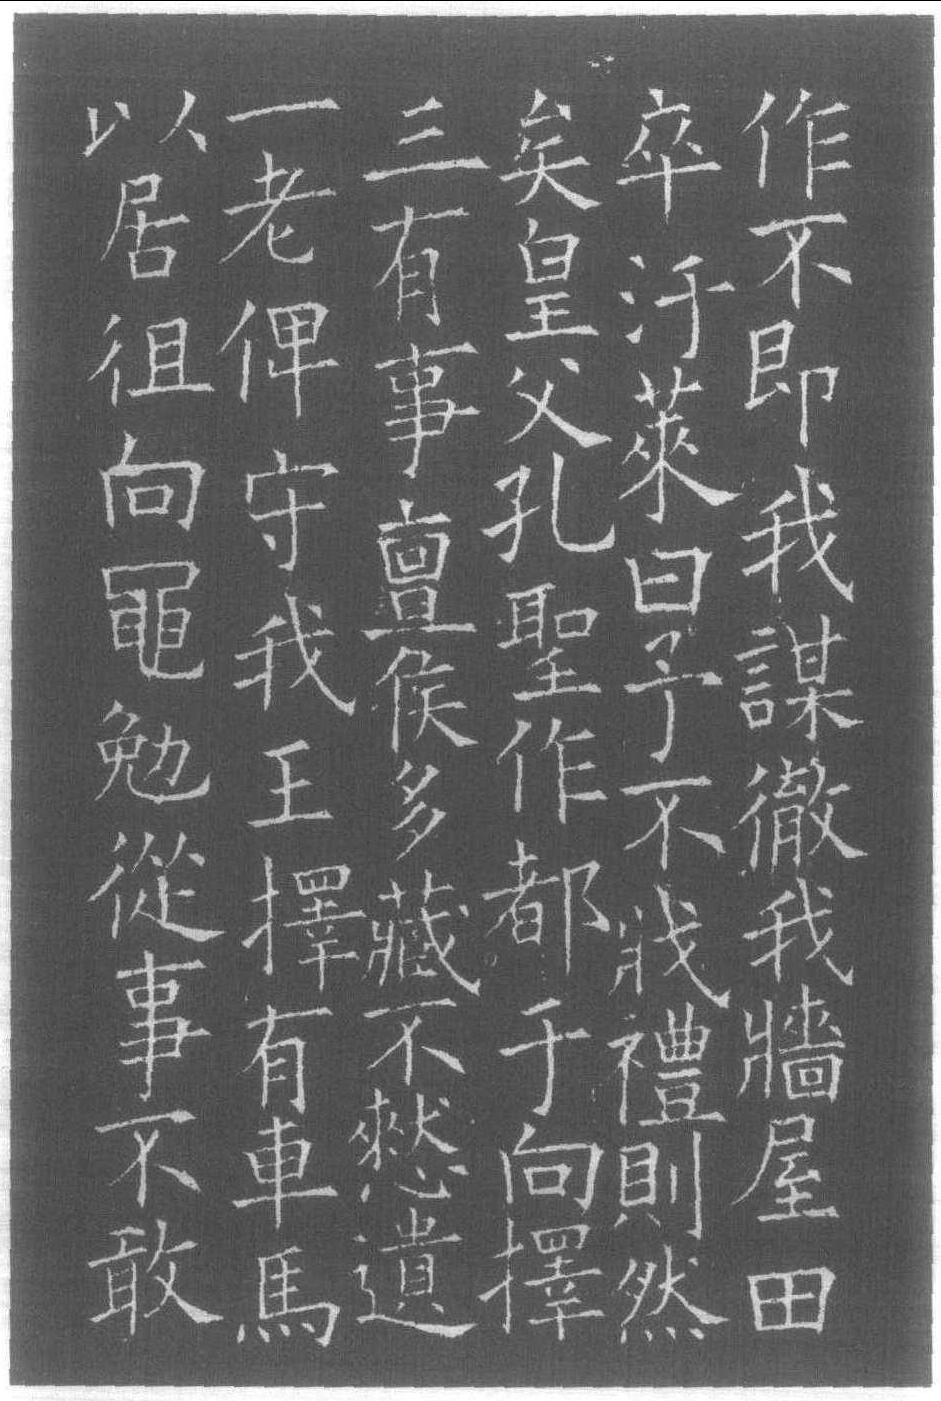 作不即我謀徹我牆屋田
卒汙萊曰予不戕禮則然
矣皇父孔聖作都于向擇
三有事亶侯多藏不憖遺
一老俾守我王擇有車馬
以居徂向黽勉從事不敢